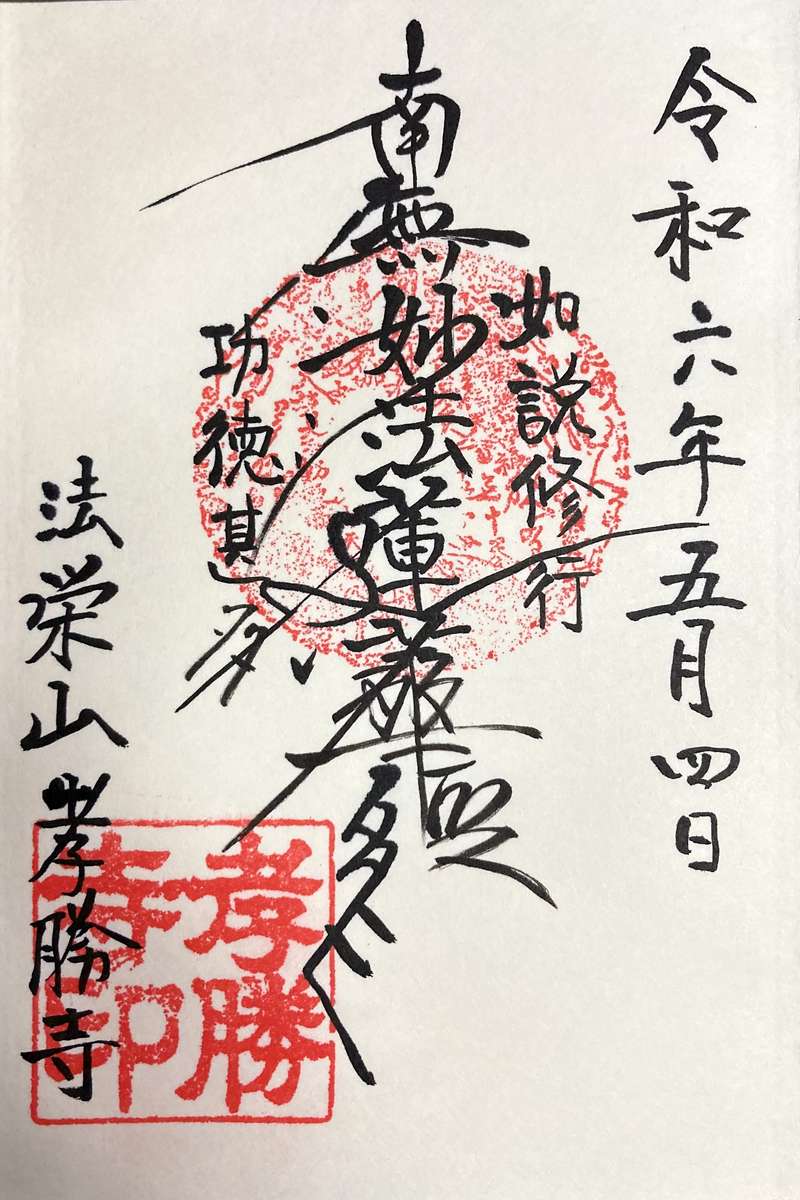 令和六年五月四日
如説修行
南無妙法蓮華経
功徳甚多
法栄山孝勝寺
孝勝寺印